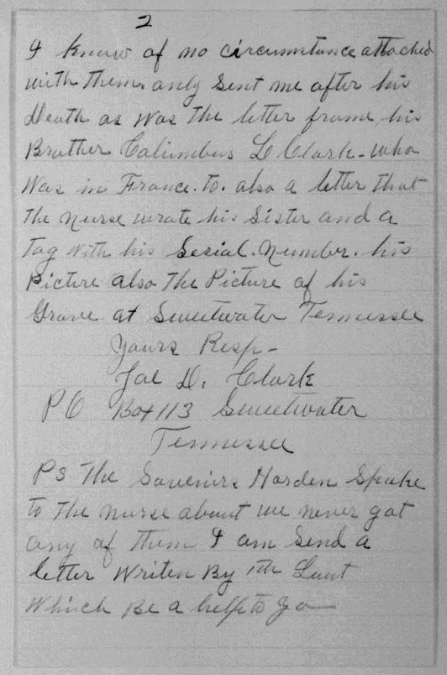 2
I know of no circumstance attached
with them only sent me after his
Death as was the letter frome his
Brother Calumbus L Clark - who
was in France. to. also a letter that
the nurse wrote his Sister and a
Tag with his Serial. Number. his
Picture also The Picture of his
Grave at Sweetwater Tennessee
Yours Resp-
Joe D. Clark
PO Box 113 Sweetwater
Tennessee
PS The Souvenirs Harden Speake
to The nurse about we never got
any of Them I am Send a
letter Writen By 1th Lunt
Which Be a help to yo